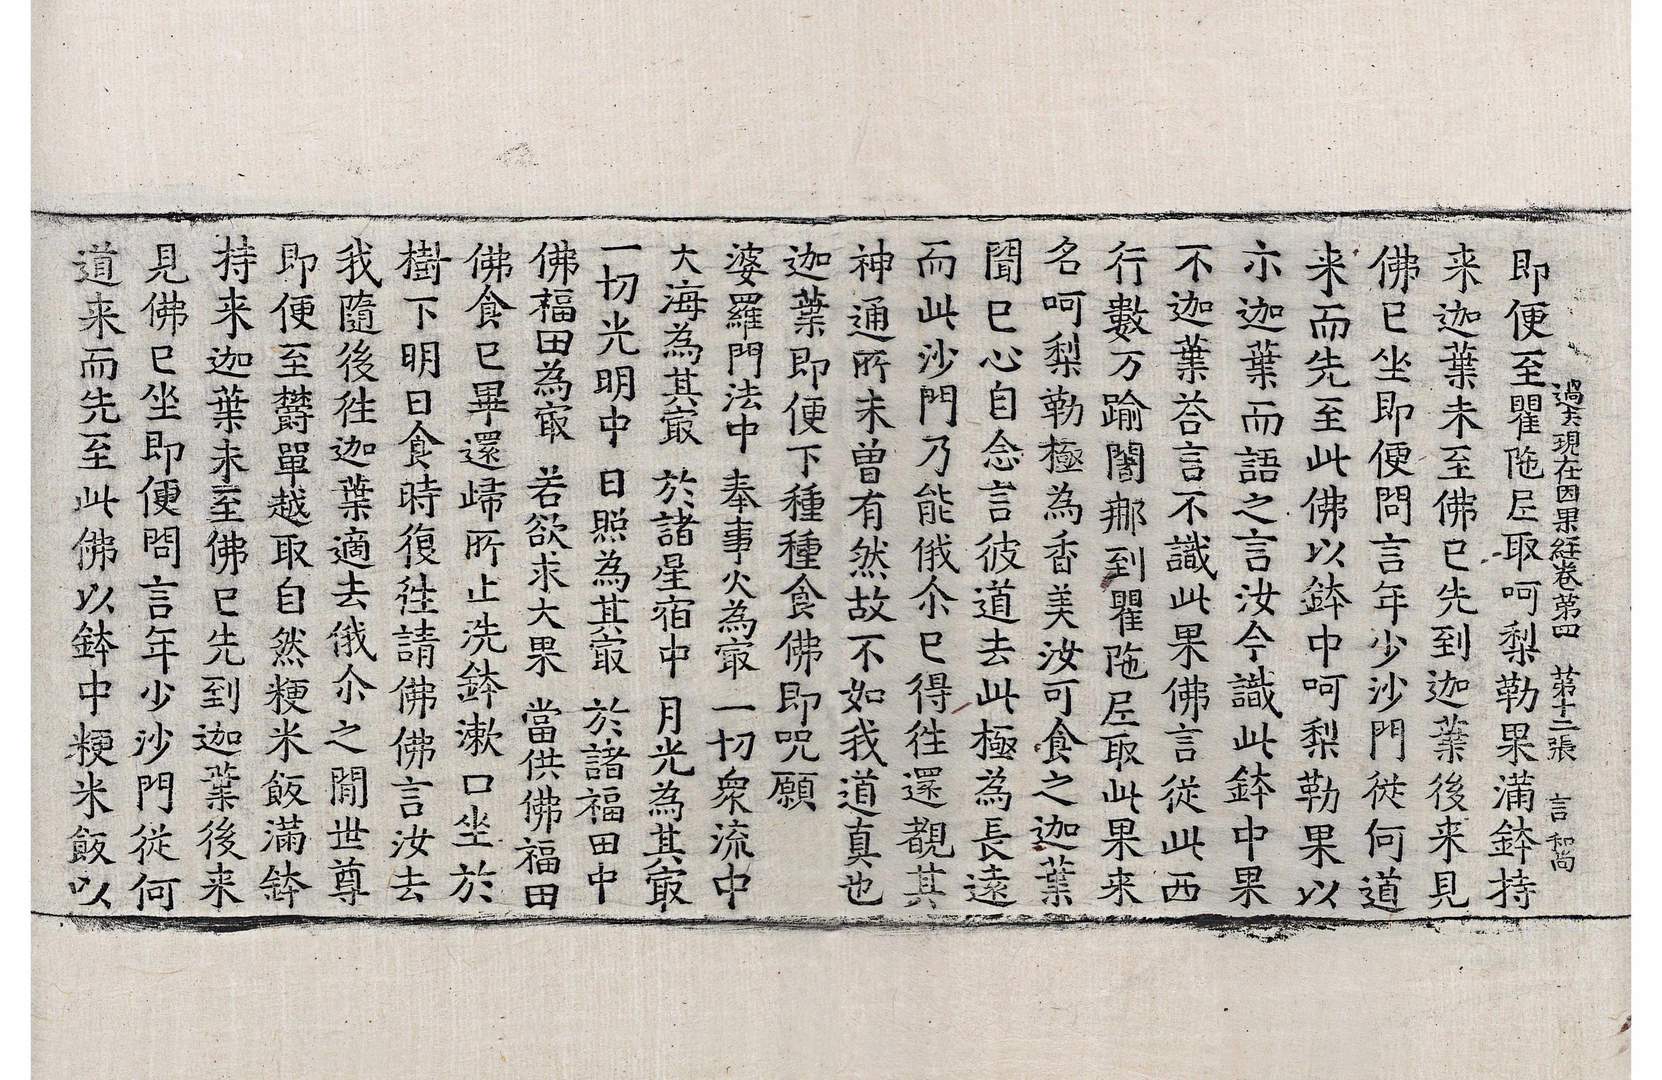 過去現在因果経卷第四 第十二張 言 和尚
即便至瞿陁尼取呵梨勒果滿鉢持
来迦葉未至佛已先到迦葉後来見
佛已坐即便問言年少沙門從何道
来而先至此佛以鉢中呵梨勒果以
示迦葉而語之言汝今識此鉢中果
不迦葉荅言不識此果佛言從此西
行數万踰闍郍到瞿陁尼取此果来
名呵梨勒極為香美汝可食之迦葉
聞已心自念言彼道去此極為長遠
而此沙門乃能俄尒已得往還覩其
神通所未曾有然故不如我道真也
迦葉即便下種種食佛即呪願
婆羅門法中 奉事火為㝡 一切衆流中
大海為其㝡 於諸星宿中 月光為其㝡
一切光明中 日照為其㝡 於諸福田中
佛福田為㝡 若欲求大果 當供佛福田
佛食已畢還㱕所止洗鉢漱口坐於
樹下明日食時復往請佛佛言汝去
我隨後往迦葉適去俄尒之閒世尊
即便至欝單越取自然粳米飯滿鉢
持来迦葉未至佛已先到迦葉後来
見佛已坐即便問言年少沙門從何
道来而先至此佛以鉢中粳米飯以